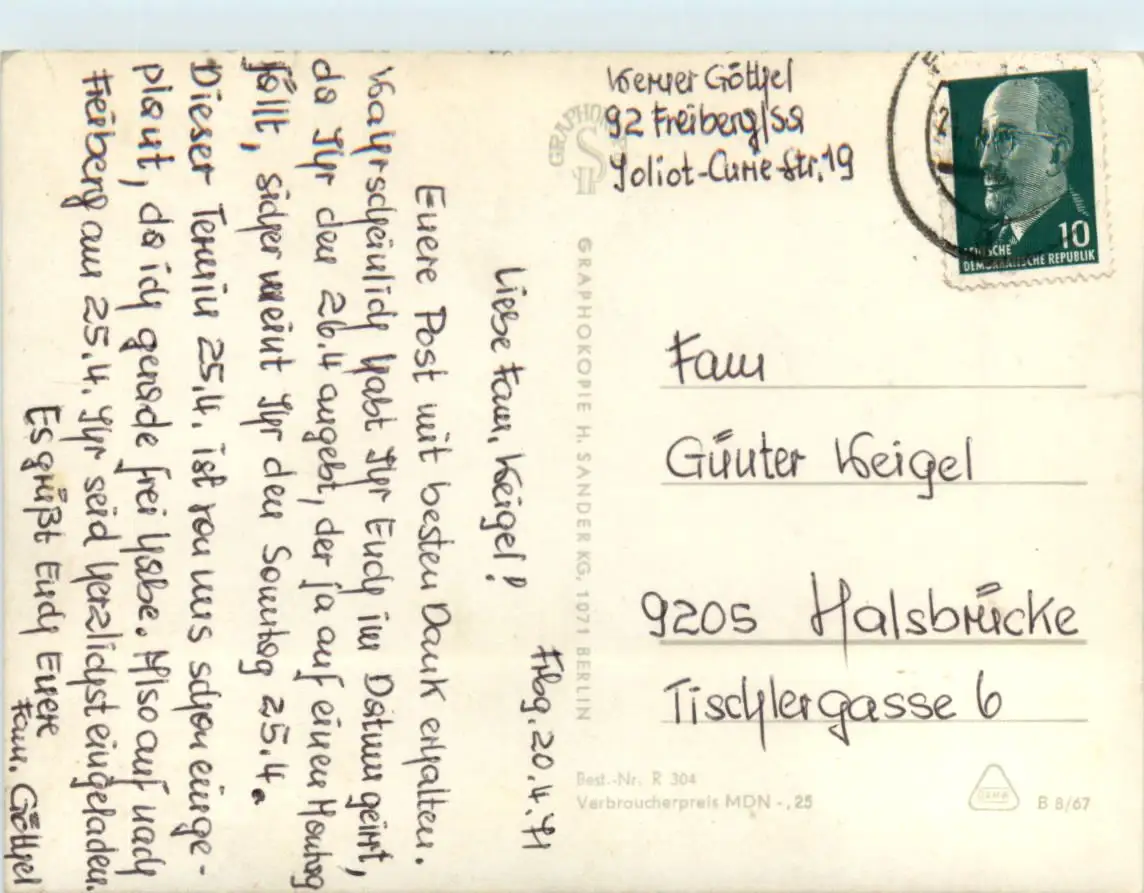 Frbg. 20.4.71
Liebe Fam. Weigel!
Euere Post mit besten Dank erhalten.
Wahrscheinlich habt Ihr Euch im Datum geirrt,
da Ihr den 26.4 angebt, der ja auf einen Montag
fällt, sicher meint Ihr den Sonntag 25.4.
Dieser Termin 25.4. ist von uns schon einge-
plant, da ich gerade frei habe. Also auf nach
Freiberg am 25.4. Ihr seid herzlichst eingeladen.
Es grüßt Euch Euere
Fam. Göthel
Werner Göthel
92 Freiberg/Sa
Joliot-Curie-Str. 19
GRAPHOKOPIE H. SANDER KG, 1071 BERLIN
10
DEMOKRATISCHE REPUBLIK
Fam
Günter Weigel
9205 Halsbrücke
Tischlergasse 6
Best.-Nr. R 304
Verbraucherpreis MDN -,25
B 8/67